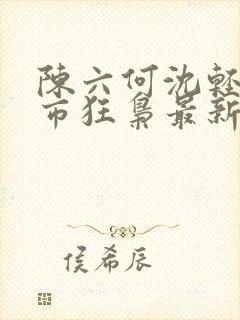 陳六何沈輕
市狂梟最新
侯希辰